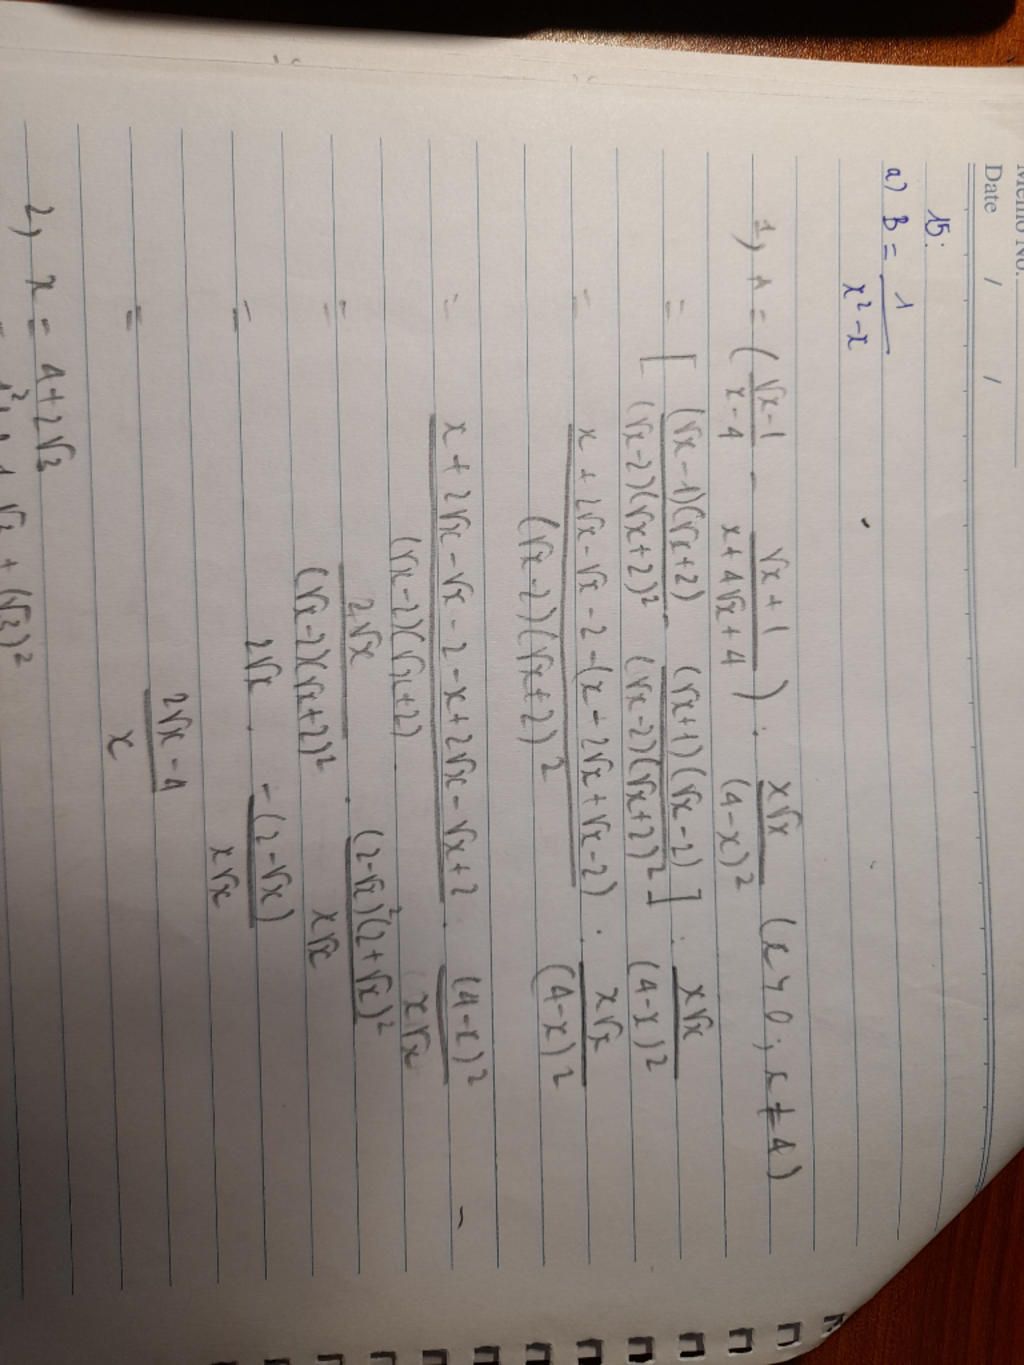 Memo No.
Date / /
15:
a) B = 1/(x² - x)
1, A = ( (√x-1)/(x-4) - (√x+1)/(x+4√x+4) ) : x√x/(4-x)² (x > 0 ; x ≠ 4)
= [ (√x-1)(√x+2)/(√x-2)(√x+2)² - (√x+1)(√x-2)/(√x-2)(√x+2)² ] : x√x/(4-x)²
= x+2√x-√x-2-(x-2√x+√x-2)/(√x-2)(√x+2)² : x√x/(4-x)²
= x+2√x-√x-2-x+2√x-√x+2/(√x-2)(√x+2) . (4-x)²/x√x
= 2√x/(√x-2)(√x+2)² . (2-√x)²(2+√x)²/x√x
= 2√x . -(2-√x)/x√x
= 2√x-4/x
2, x = 4+2√3